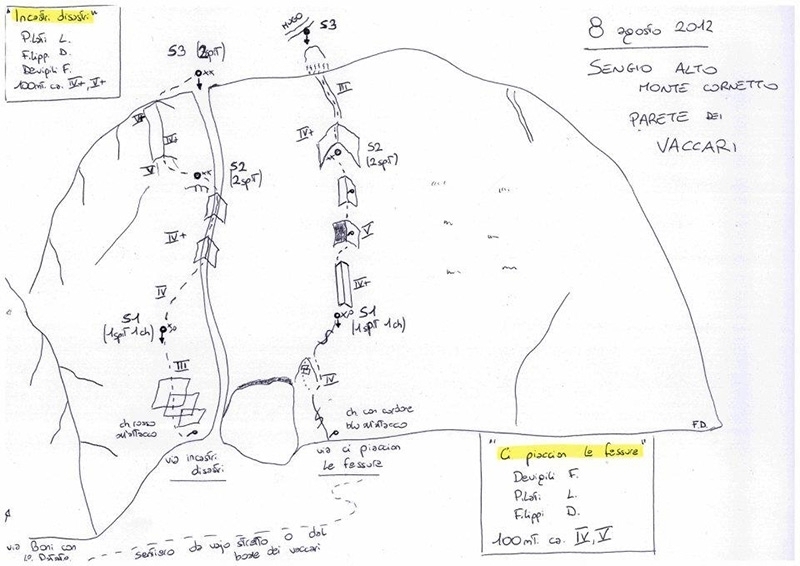 "Incastri disastri"
Piloti L.
Filippi D.
Devigili F.
100mt. ca. IV+, V+
MUGO
S3
S3 (2spit)
8 agosto 2012
SENGIO ALTO
MONTE CORNETTO
PARETE DEI
VACCARI
III
IV+
V
IV+
S2
(2spit)
S2
(2spit)
IV+
V
IV
IV+
S1
(1spit 1ch)
S1
(1spit 1ch)
III
IV
ch rosso
all'attacco
ch con cordone
blu all'attacco
F.D.
via incastri
disastri
via ci piaccion
le fessure
"Ci piaccion le fessure"
Devigili F.
Piloti L.
Filippi D.
100mt. ca. IV, V
via Boni con
sentiero da vajo stretto o dal
bosco dei vaccari